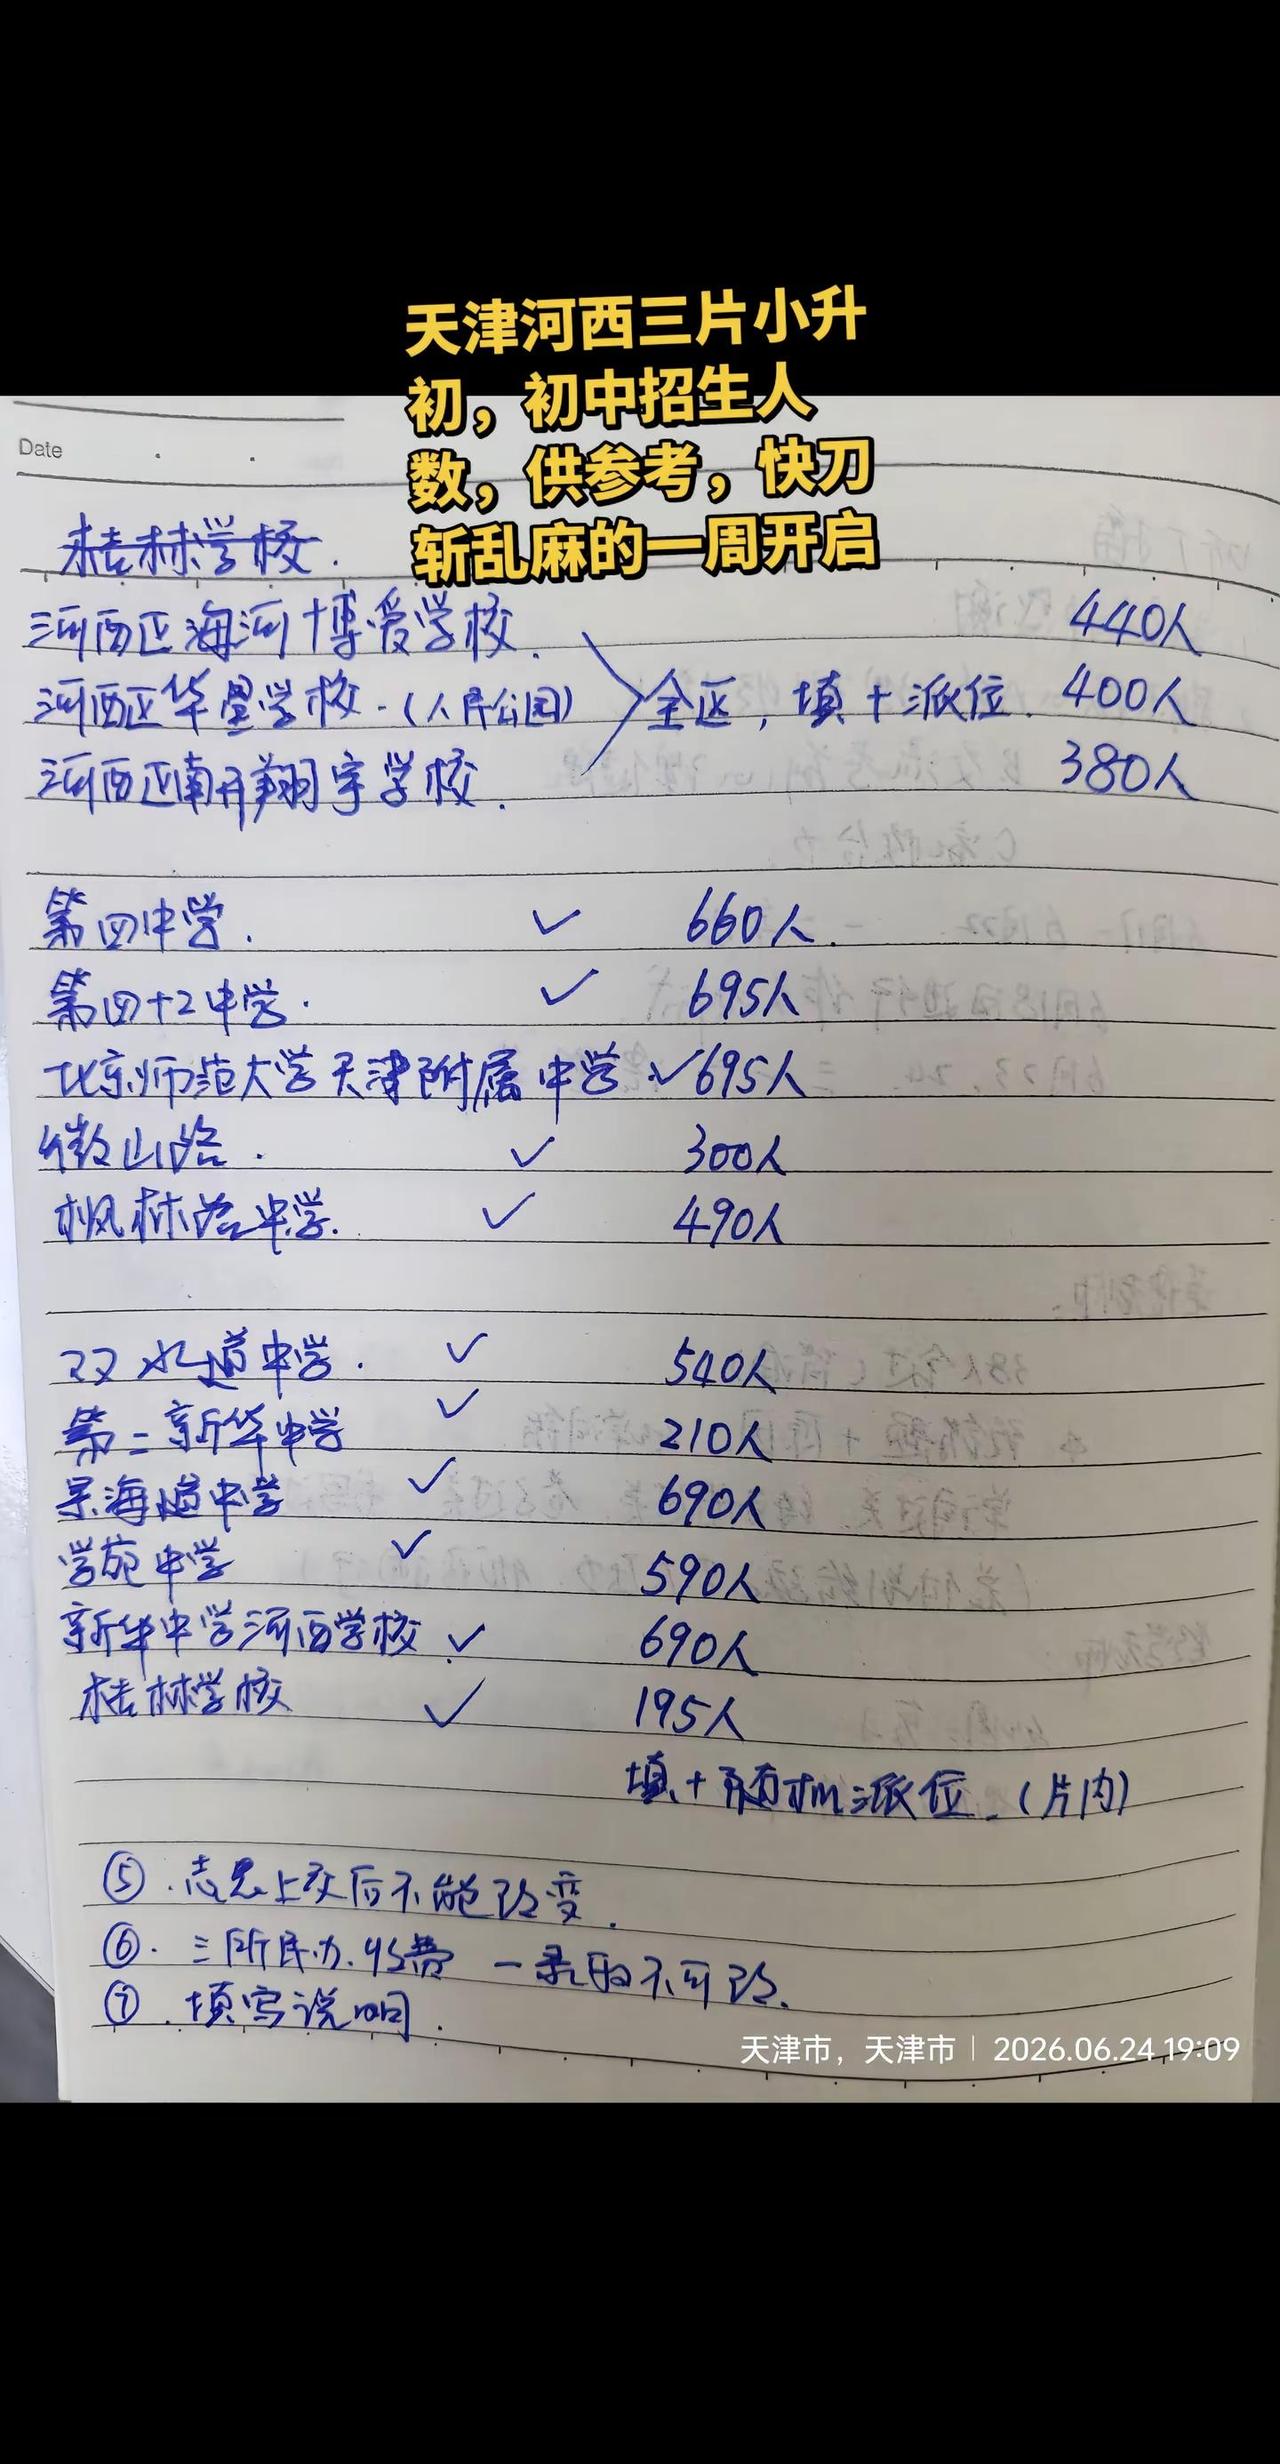 天津河西三片小升
初，初中招生人
数，供参考，快刀
斩乱麻的一周开启
Date
桂林学校.
河西区海河博爱学校. 440人
河西区华星学校.（人民公园） 全区，填+派位. 400人
河西区南开翔宇学校. 380人
第四中学. ✓ 660人.
第四十2中学. ✓ 695人
北京师范大学天津附属中学 ✓ 695人
微山路. ✓ 300人
枫林路中学. ✓ 490人
双水道中学. ✓ 540人
第二新华中学 ✓ 210人
景海道中学 ✓ 690人
学苑中学 ✓ 590人
新华中学河西学校 ✓ 690人
桂林学校 ✓ 195人
填+随机派位.（片内）
⑤.志愿上交后不能改变.
⑥.三所民办.收费 一录取不可改.
⑦.填写说明.
天津市，天津市 | 2026.06.24 19:09